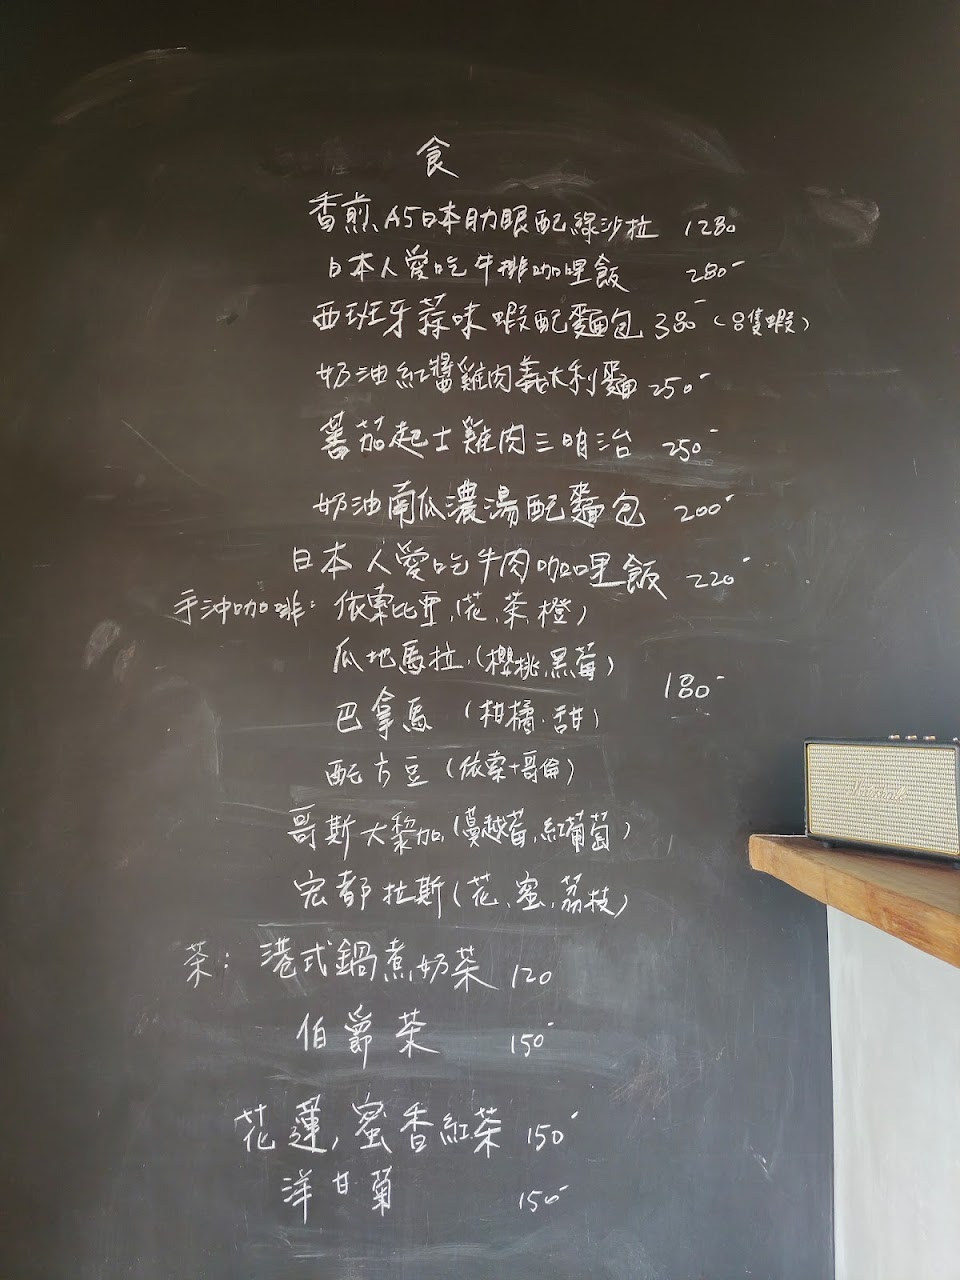 食
香煎A5日本肋眼配綠沙拉 1280
日本人愛吃牛排咖哩飯 280-
西班牙蒜味蝦配麵包 380-(8隻蝦)
奶油紅醬雞肉義大利麵 250-
蕃茄起士雞肉三明治 250-
奶油南瓜濃湯配麵包 200-
日本人愛吃牛肉咖哩飯 220-
手沖咖啡: 依索比亞(花、茶、橙)
瓜地馬拉(櫻桃、黑莓)
180-
巴拿馬 (柑橘、甜)
配方豆 (依索+哥倫)
哥斯大黎加(蔓越莓,紅葡萄)
宏都拉斯(花、蜜,荔枝)
茶: 港式鍋煮奶茶 120
伯爵茶 150-
花蓮,蜜香紅茶 150-
洋甘菊 150-
Marshall